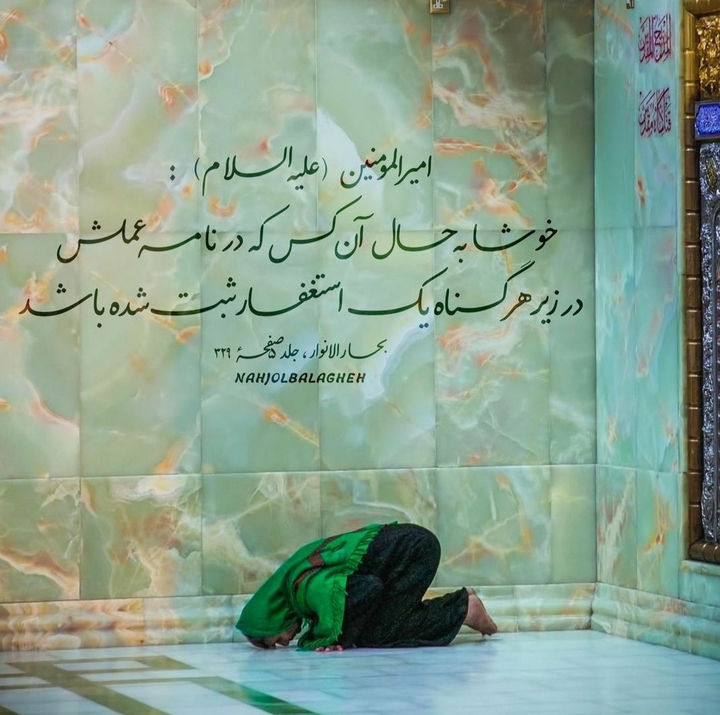 امیرالمومنین (علیه السلام) :
خوشا به حال آن کس که در نامه عملش
در زیر هر گناه یک استغفار ثبت شده باشد
بحارالانوار، جلد ۵ صفحهٔ ۳۲۹
NAHJOLBALAGHEH